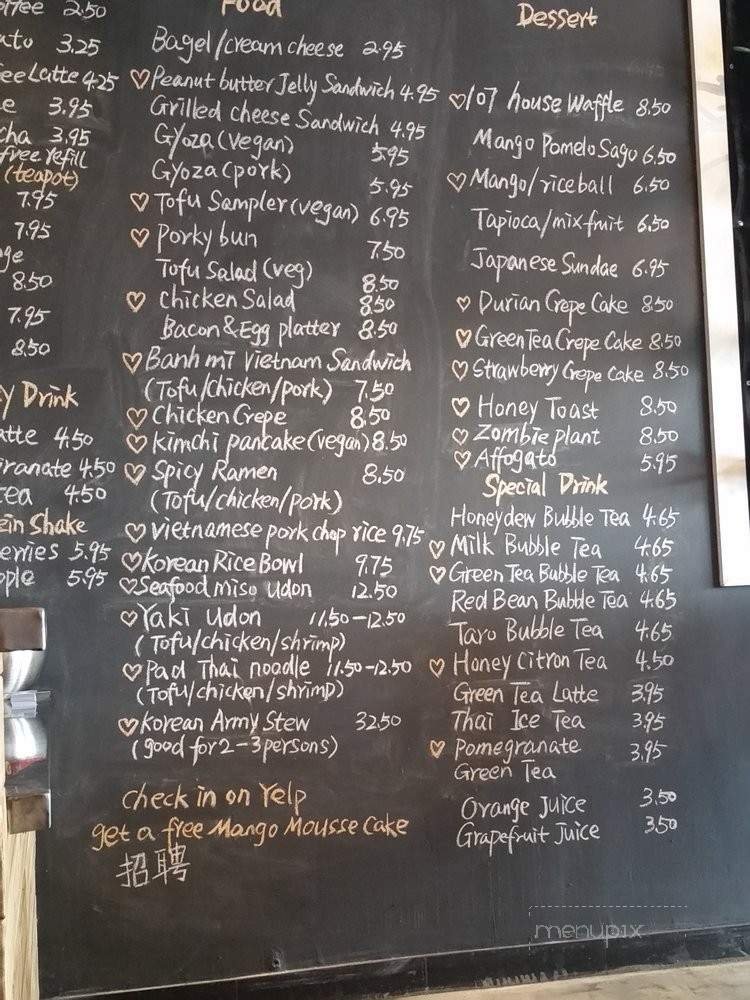 2.50
3.25
Latte 4.25
3.95
3.95
free refill
(teapot)
7.95
7.95
8.50
7.95
8.50
Drink
4.50
4.50
4.50
Shake
5.95
5.95
Food
Bagel/cream cheese 2.95
♡Peanut butter Jelly Sandwich 4.95
Grilled cheese Sandwich 4.95
Gyoza (vegan) 5.95
Gyoza (pork) 5.95
♡Tofu Sampler (vegan) 6.95
♡Porky bun 7.50
Tofu Salad (veg) 8.50
♡chicken Salad 8.50
Bacon & Egg platter 8.50
♡Banh mī Vietnam Sandwich
(Tofu/chicken/pork) 7.50
♡Chicken Crepe 8.50
♡kimchi pancake (vegan) 8.50
♡Spicy Ramen 8.50
(Tofu/chicken/pork)
♡vietnamese pork chop rice 9.75
♡Korean Rice Bowl 9.75
♡Seafood miso udon 12.50
♡Yaki udon 11.50-12.50
(Tofu/chicken/shrimp)
♡Pad Thai noodle 11.50-12.50
(Tofu/chicken/shrimp)
♡Korean Army Stew 32.50
(good for 2-3 persons)
check in on Yelp
get a free Mango Mousse Cake
招聘
Dessert
♡107 house Waffle 8.50
Mango Pomelo Sago 6.50
♡Mango/rice ball 6.50
Tapioca/mix fruit 6.50
Japanese Sundae 6.95
♡Durian Crepe Cake 8.50
♡Green Tea Crepe Cake 8.50
♡Strawberry Crepe Cake 8.50
♡Honey Toast 8.50
♡Zombie plant 8.50
♡Affogato 5.95
Special Drink
Honeydew Bubble Tea 4.65
♡Milk Bubble Tea 4.65
♡Green Tea Bubble Tea 4.65
Red Bean Bubble Tea 4.65
Taro Bubble Tea 4.65
♡Honey Citron Tea 4.50
Green Tea Latte 3.95
Thai Ice Tea 3.95
♡Pomegranate 3.95
Green Tea
Orange Juice 3.50
Grapefruit Juice 3.50
menupix